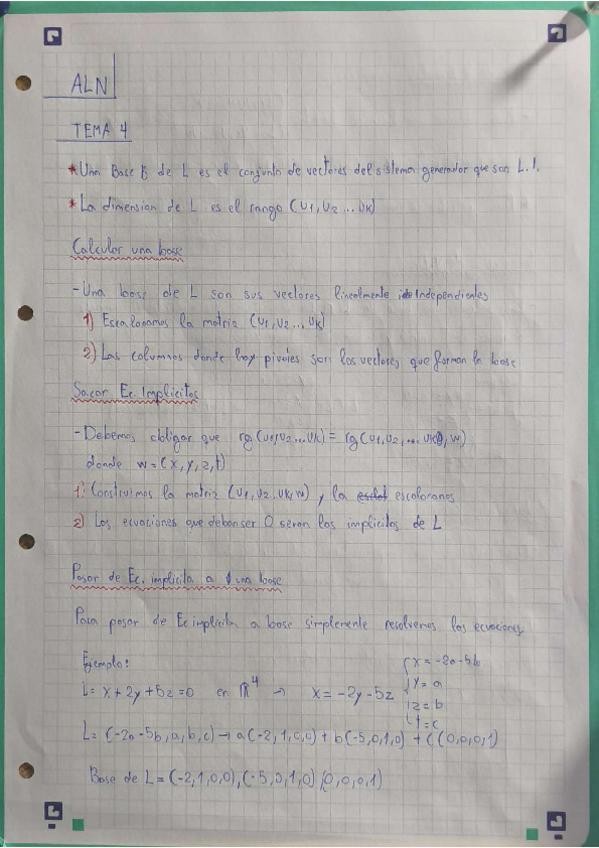 ALN
TEMA 4
* Una Base B de L es el conjunto de vectores del sistema generador que son L.I.
* La dimension de L es el rango (U1, U2 ... UK)
Calcular una base
- Una base de L son sus vectores linealmente independientes
1) Escalonamos la matriz (U1, U2 ... UK)
2) Las columnas donde hay pivotes son los vectores que forman la base
Sacar Ec. Implicitas
- Debemos obligar que rg (U1, U2 ... UK) = rg (U1, U2, ... UK, w)
donde w = (x, y, z, t)
1) Construimos la matriz (U1, U2 .. UK, w) y la escalonamos
2) Las ecuaciones que deban ser 0 seran las implicitas de L
Pasar de Ec. implicita a una base
Para pasar de Ec implicita a base simplemente resolvemos las ecuaciones
Ejemplo:
L = x + 2y + 5z = 0 en ℝ^4 → x = -2y - 5z { x = -2a - 5b
y = a
z = b
t = c
L = (-2a - 5b, a, b, c) → a(-2, 1, 0, 0) + b(-5, 0, 1, 0) + c(0, 0, 0, 1)
Base de L = (-2, 1, 0, 0), (-5, 0, 1, 0) (0, 0, 0, 1)